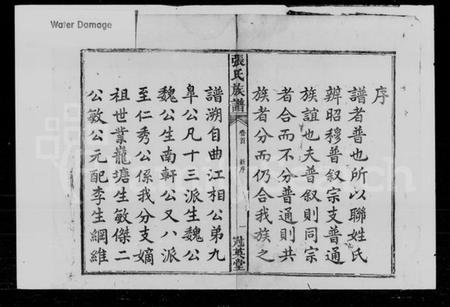 Water Damage
序
譜者普也所以聯姓氏
辨昭穆普叙宗支普通
族誼也夫普叙則同宗
者合而不分普通則共
族者分而仍合我族之
張氏族譜
卷首
新序
一
冠英堂
譜溯自曲江相公弟九
臯公凡十三派生魏公
魏公生南軒公又八派
至仁秀公係我分支嫡
祖世業龍塘生敏傑二
公敏公元配李生綱維